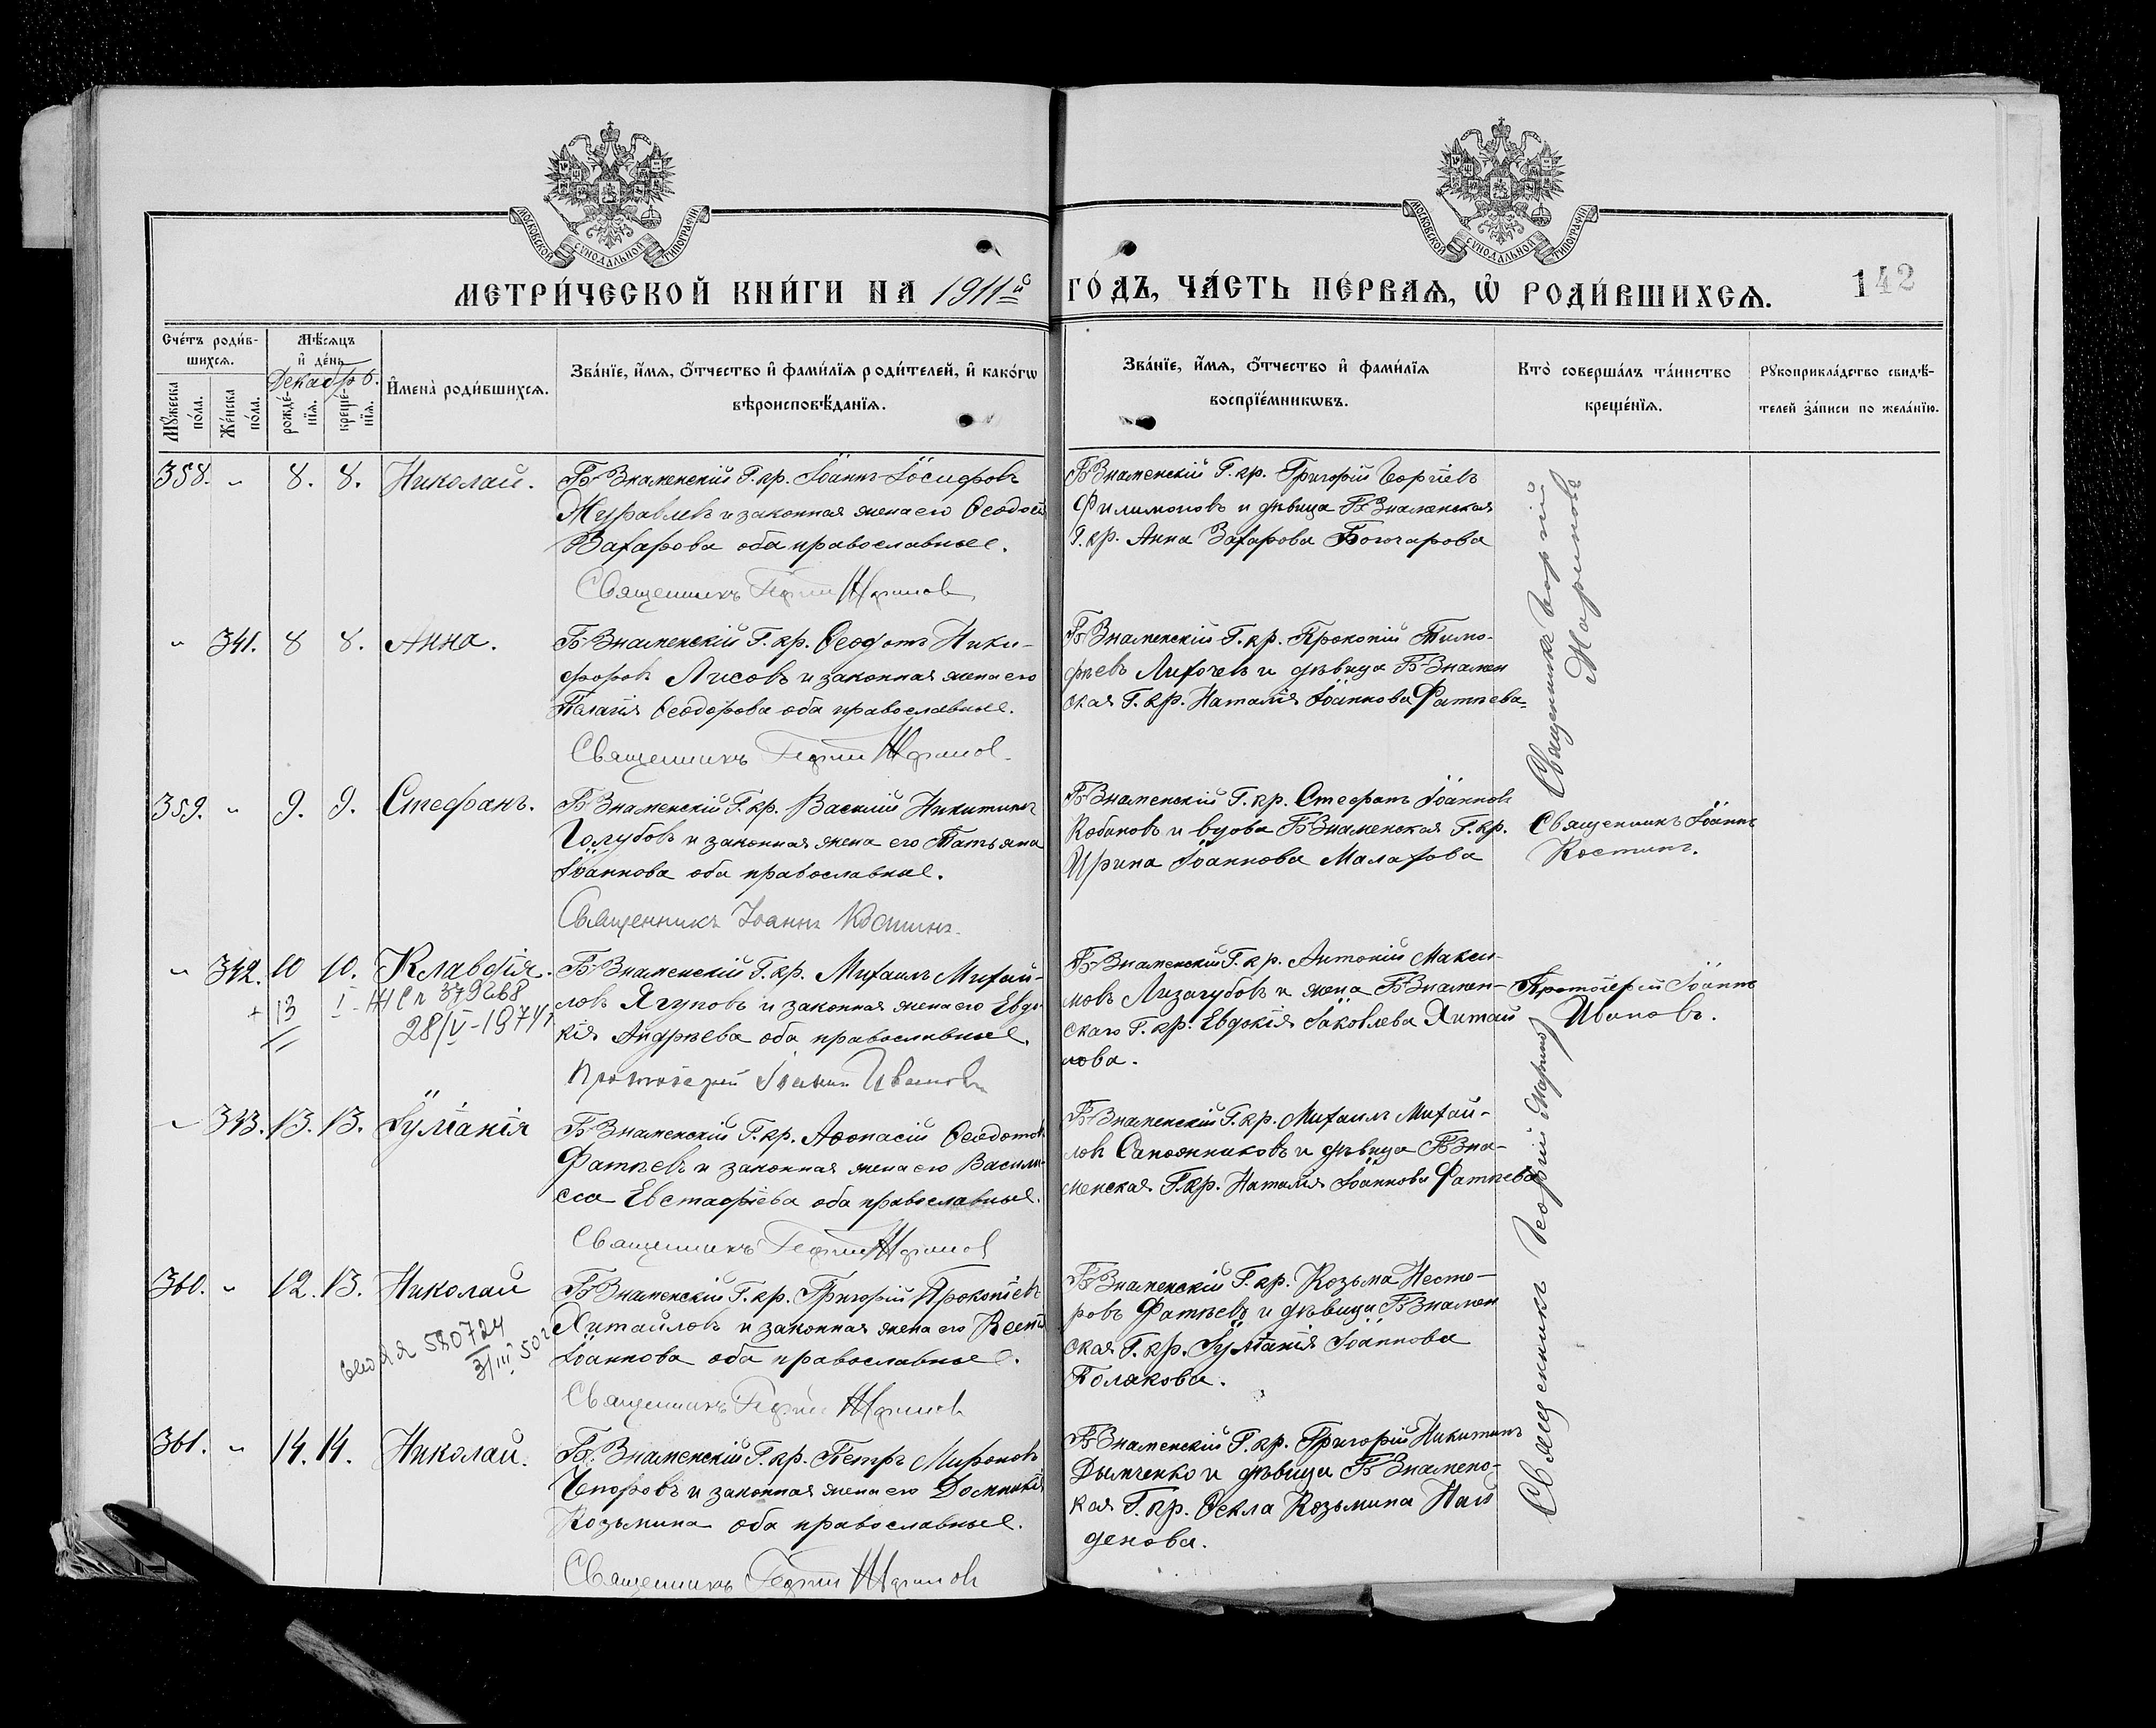 МОСКОВСКОЙ СѴНОДАЛЬНОЙ ТИПОГРАФІИ
МОСКОВСКОЙ СѴНОДАЛЬНОЙ ТИПОГРАФІИ
МЕТРИ́ЧЕСКОЙ КНИ́ГИ НА 1911й ГО́ДЪ, ЧА́СТЬ ПЕ́РВАѦ, Ѡ҆ РОДИ́ВШИХСѦ.
142
Сче́тъ роди́в-
шихсѧ.
Мꙋ́жеска по́ла.
Же́нска по́ла.
Мѣ́сѧцъ
и҆ де́нь
Декабрь.
рожде́-нїѧ.
креще́-нїѧ.
И҆мена̀ роди́вшихсѧ.
Зва́нїе, и҆́мѧ, ѻ҆́тчество и҆ фами́лїѧ роди́телей, и҆ како́гѡ
вѣроисповѣ́данїѧ.
Зва́нїе, и҆́мѧ, ѻ҆́тчество и҆ фами́лїѧ
воспрїе́мникѡвъ.
Кто̀ соверша́лъ та́инство
креще́нїѧ.
Рꙋкоприкла́дство свидѣ́-
телей за́писи по жела́нїю.
358. " 8. 8. Николай.
Б-Знаменскій Г. кр. Іоаннъ Іосифовъ
Журавлевъ и законная жена его Ѳеодосія
Захарова оба православные.
Священникъ Георгій Маринов
Б-Знаменскій Г. кр. Григорій Георгіевъ
Филимоновъ и дѣвица Б-Знаменская
Г. кр. Анна Захарова Бончарова
Священникъ Георгій
Мариновъ
" 341. 8 8. Анна.
Б-Знаменскій Г. кр. Ѳеодотъ Ники-
форовъ Лисовъ и законная жена его
Пелагія Ѳеодорова оба православные.
Священникъ Георгій Маринов
Б-Знаменскій Г. кр. Прокопій Тимо-
ѳеевъ Лихочевъ и дѣвица Б-Знамен
ская Г. кр. Наталія Іоаннова Фатѣева
359. " 9. 9. Стефанъ.
Б-Знаменскій Г. кр. Василій Никитинъ
Голубовъ и законная жена его Татьяна
Іоаннова оба православные.
Священникъ Іоаннъ Костинъ
Б-Знаменскій Г. кр. Стефанъ Іоанновъ
Кобановъ и вдова Б-Знаменская Г. кр.
Ирина Іоаннова Малахова
Священникъ Іоаннъ
Костинъ.
" 342. 10 10. Клавдія.
+ 13 I
28/V-1974г
Б-Знаменскій Г. кр. Михаилъ Михай-
ловъ Ягуповъ и законная жена его Евдо-
кія Андреева оба православные.
Протоіерей Іоаннъ Ивановъ
Б-Знаменскій Г. кр. Антоній Макси-
мовъ Лизагубовъ и жена Б-Знамен-
скаго Г. кр. Евдокія Іаковлева Хитай
лова.
Протоіерей Іоаннъ
Ивановъ.
" 343. 13. 13. Іуліанія
Б-Знаменскій Г. кр. Аѳонасій Ѳеодотов
Фатѣевъ и законная жена его Васили-
са Евстафіева оба православные.
Священникъ Георгій Маринов
Б-Знаменскій Г. кр. Михаилъ Михай-
ловъ Сапожниковъ и дѣвица Б-Зна-
менская Г. кр. Наталія Іоаннова Фатѣева
360. " 12. 13. Николай
580724
3/III 50г
Б-Знаменскій Г. кр. Григорій Прокопіевъ
Хитайловъ и законная жена его Ксенія
Іоаннова оба православные.
Священникъ Георгій Маринов
Б-Знаменскій Г. кр. Козьма Несто-
ровъ Фатѣевъ и дѣвица Б-Знамен
ская Г. кр. Іуліанія Іоаннова
Полякова.
Священникъ Георгій Мариновъ
361. " 14. 14. Николай.
Б-Знаменскій Г. кр. Петръ Мироновъ
Чепоровъ и законная жена его Домникія
Козьмина оба православные.
Священникъ Георгій Мариновъ
Б-Знаменскій Г. кр. Григорій Никитинъ
Дымченко и дѣвица Б-Знаменс-
кая Г. кр. Ѳекла Козьмина Най
денова.